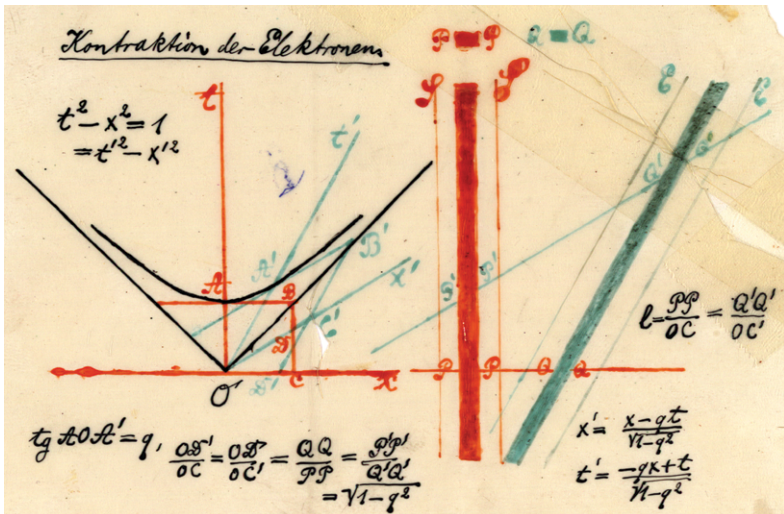 Kontraktion der Elektronens
t² - x² = 1
= t'² - x'²
t
t'
A
A'
B
B'
x'
C'
D
D'
C
X
O
P P
Q Q
P' P'
Q' Q'
P P
Q Q
l = PP/OC = Q'Q'/OC'
tg AOA' = q, OD'/OC = OD/OC' = QQ/PP = P'P'/Q'Q'
= √1-q²
x' = x-qt/√1-q²
t' = -qx+t/√1-q²